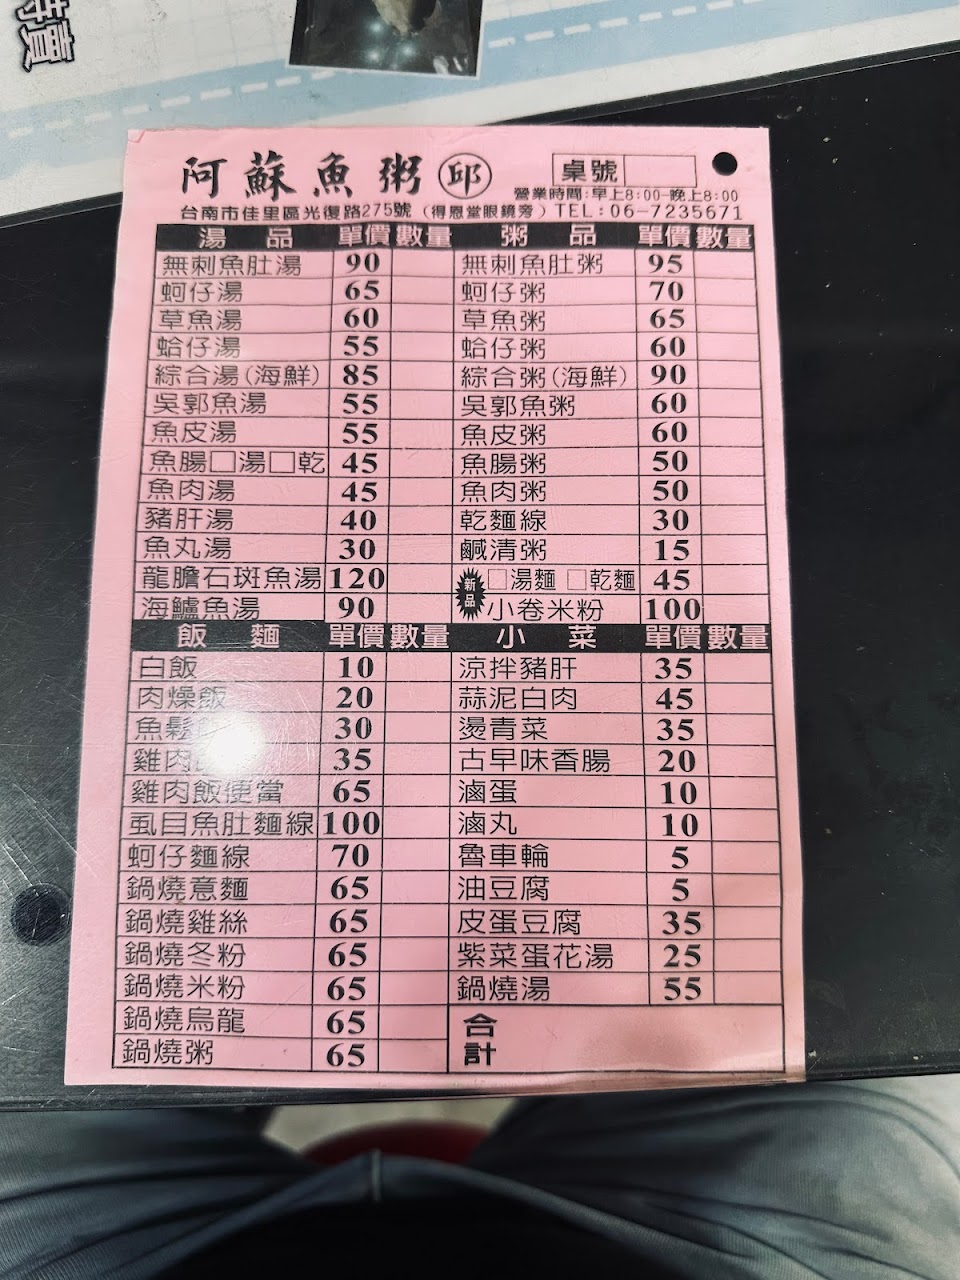 特賣
阿蘇魚粥 邱 桌號
營業時間:早上8:00-晚上8:00
台南市佳里區光復路275號(得恩堂眼鏡旁)TEL:06-7235671
湯品 單價 數量 粥品 單價 數量
無刺魚肚湯 90 無刺魚肚粥 95
蚵仔湯 65 蚵仔粥 70
草魚湯 60 草魚粥 65
蛤仔湯 55 蛤仔粥 60
綜合湯(海鮮) 85 綜合粥(海鮮) 90
吳郭魚湯 55 吳郭魚粥 60
魚皮湯 55 魚皮粥 60
魚腸□湯□乾 45 魚腸粥 50
魚肉湯 45 魚肉粥 50
豬肝湯 40 乾麵線 30
魚丸湯 30 鹹清粥 15
龍膽石斑魚湯 120 新品 □湯麵 □乾麵 45
海鱸魚湯 90 小卷米粉 100
飯麵 單價 數量 小菜 單價 數量
白飯 10 涼拌豬肝 35
肉燥飯 20 蒜泥白肉 45
魚鬆 30 燙青菜 35
雞肉 35 古早味香腸 20
雞肉飯便當 65 滷蛋 10
虱目魚肚麵線 100 滷丸 10
蚵仔麵線 70 魯車輪 5
鍋燒意麵 65 油豆腐 5
鍋燒雞絲 65 皮蛋豆腐 35
鍋燒冬粉 65 紫菜蛋花湯 25
鍋燒米粉 65 鍋燒湯 55
鍋燒烏龍 65 合計
鍋燒粥 65